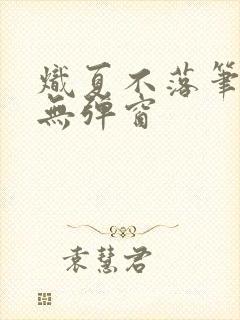 熾夏不落筆
無彈窗
袁慧君